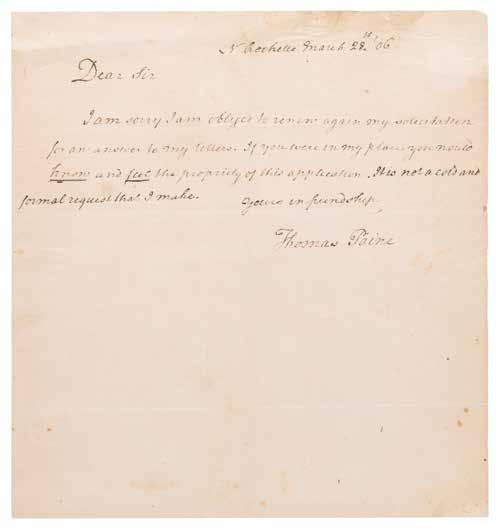 N Rochelle March 28th '06
Dear Sir
I am sorry I am obliged to renew again my solicitation
for an answer to my letters. If you were in my place you would
know and feel the propriety of this application. It is not a cold and
formal request that I make. Yours in friendship,
Thomas Paine